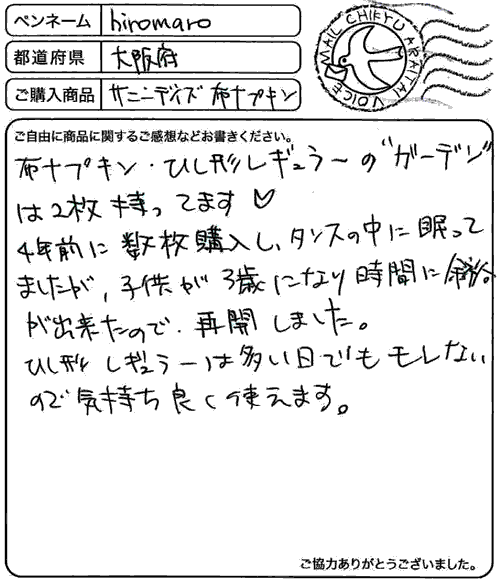 ペンネーム hiromaro
都道府県 大阪府
ご購入商品 サニーデイズ 布ナプキン
VOICE MAIL CHIKYU ARAITAI
ご自由に商品に関するご感想などお書きください。
布ナプキン・ひし形レギュラーの"ガーデン"
は2枚持ってます♡
4年前に数枚購入し、タンスの中に眠って
ましたが、子供が3歳になり時間に余裕
が出来たので、再開しました。
ひし形レギュラーは多い日でもモレない
ので気持ち良く使えます。
ご協力ありがとうございました。